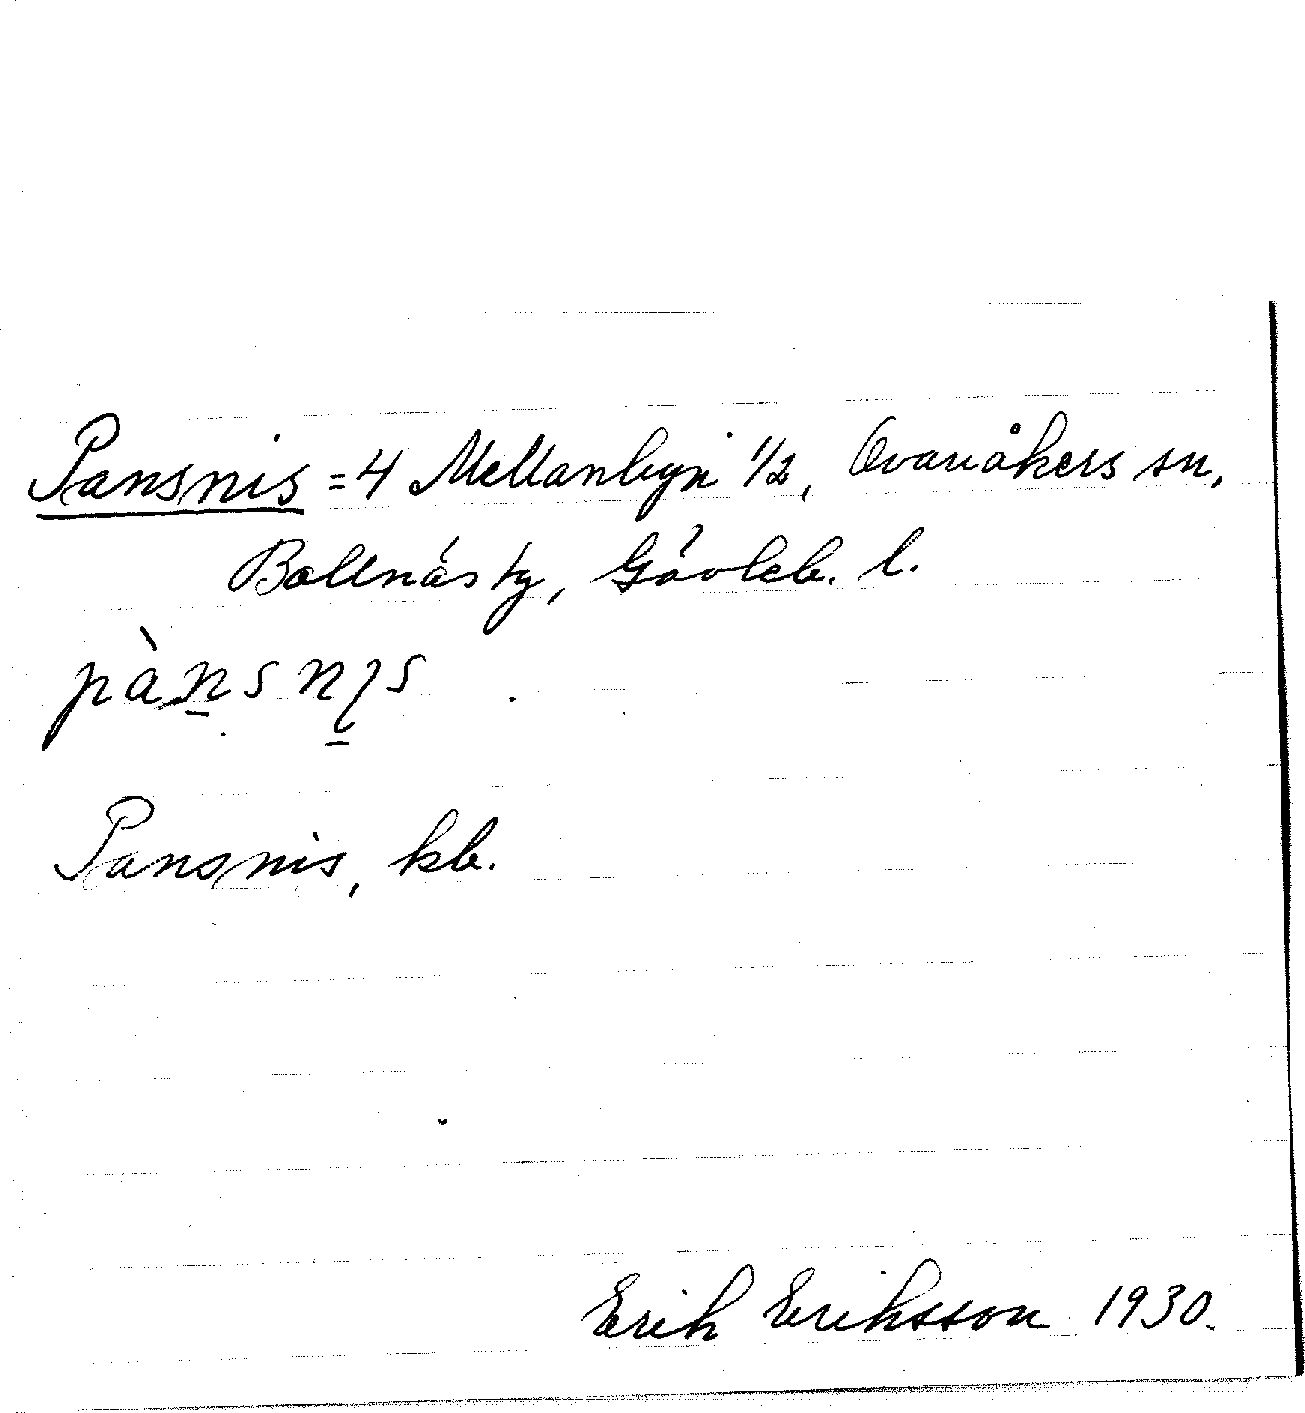 Pansnis = 4 Mellanbyn 1/2, Ovanåkers sn,
Bollnäs tg, Gävleb. l.
pàn̲snı̲s
Pansnis, kb.
Erik Eriksson 1930.